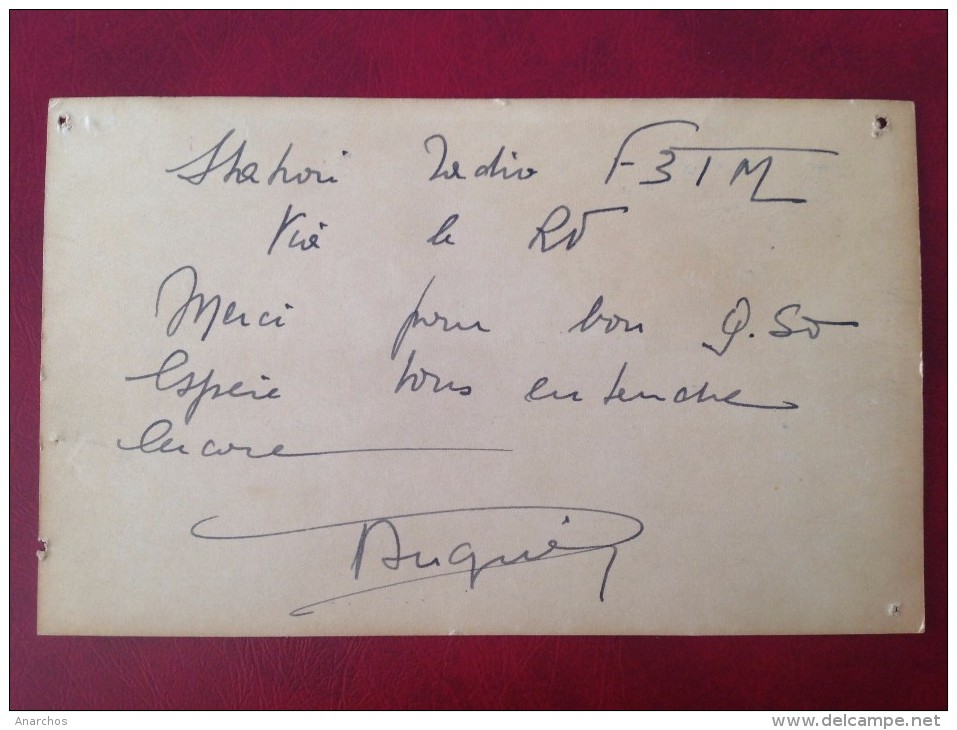 Station Radio F3IM
Via le
Merci pour bon Q.SO
Espère vous entendre
encore
Anarchos
www.delcampe.net